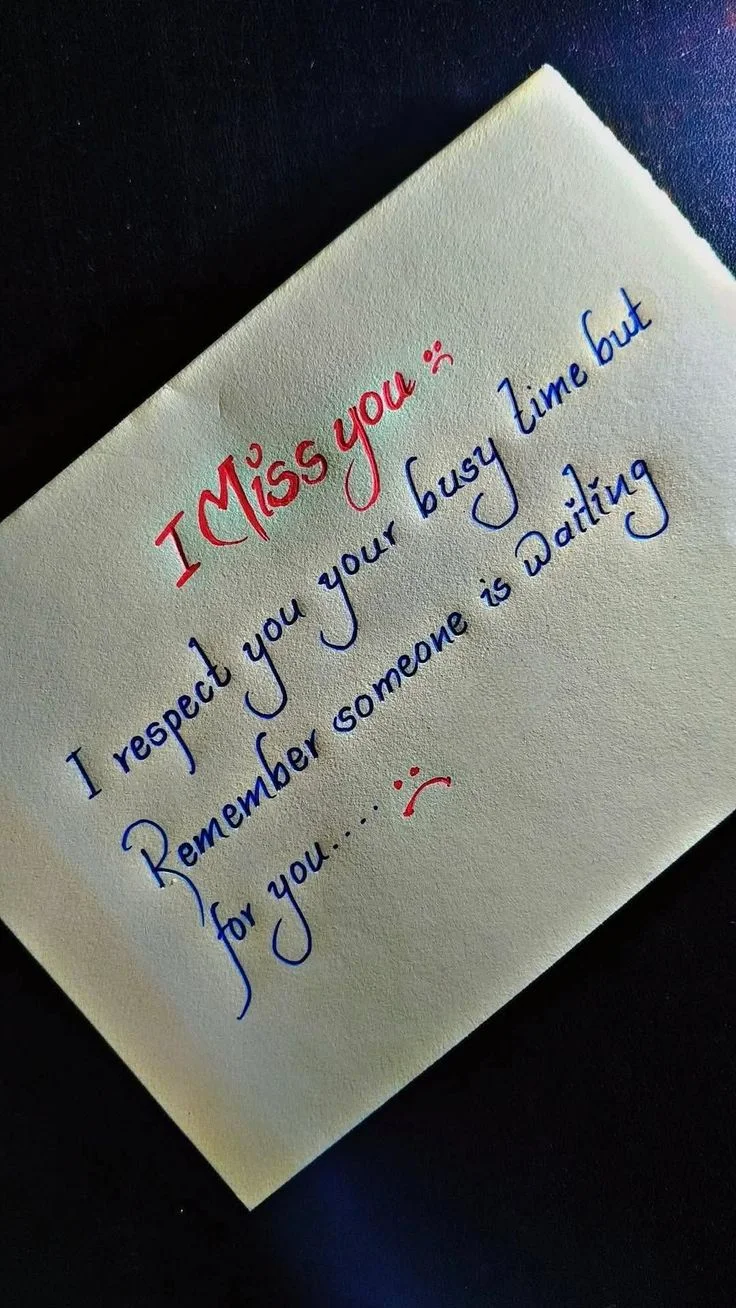 I Miss you :(
I respect you your busy time but
Remember someone is waiting
for you.... :(